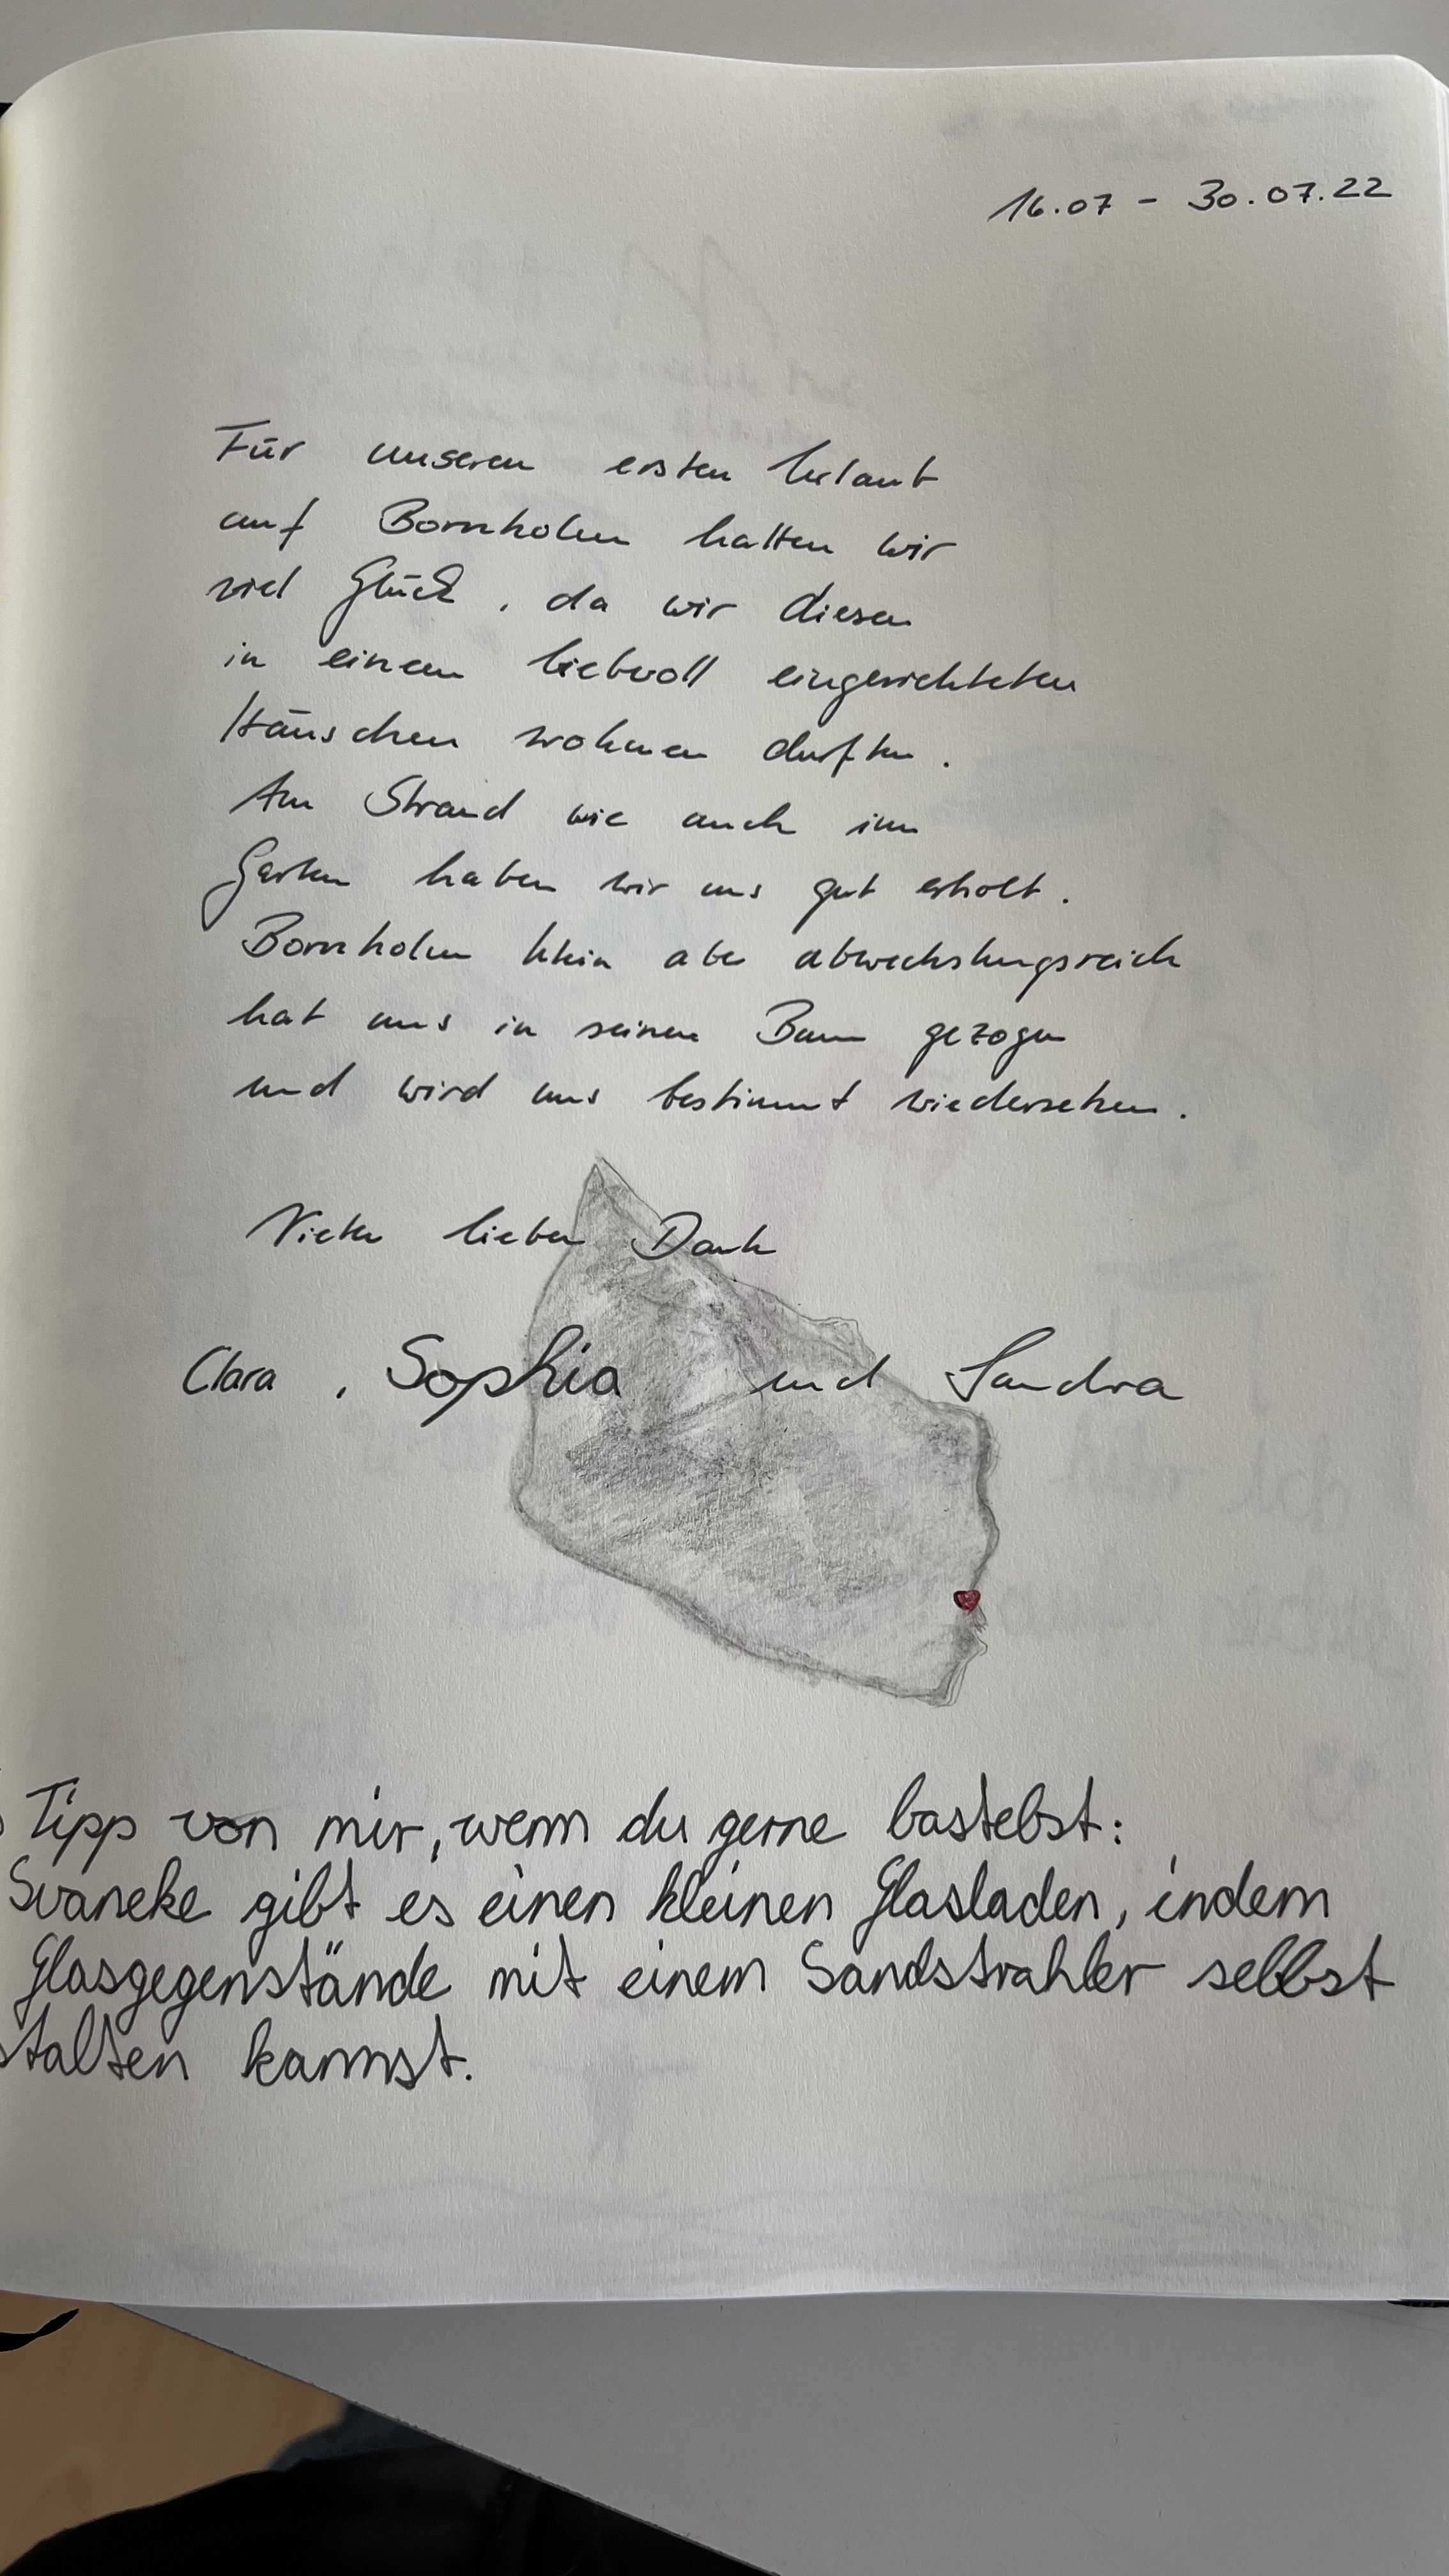 16.07 - 30.07.22
Für unseren ersten Urlaub
auf Bornholm hatten wir
viel Glück, da wir diesen
in einem liebvoll eingerichteten
Häuschen wohnen durften.
Am Strand wie auch im
Garten haben wir uns gut erholt.
Bornholm klein aber abwechslungsreich
hat uns in seinen Bann gezogen
und wird uns bestimmt wiedersehen.
Vielen lieben Dank
Clara, Sophia und Sandra
Tipp von mir, wenn du gerne bastelst:
Svaneke gibt es einen kleinen Glasladen, indem
Glasgegenstände mit einem Sandstrahler selbst
stalten kannst.